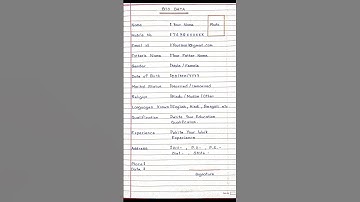 BIO DATA
Name : Your Name
Photo
Mobile No
Email id @gmail.com
Father's Name : Your Father Name
Gender : Male / Female
Date of Birth : DD/MM/YYYY
Marital Status : Married / Unmarried
Religion : Hindu / Muslim / Other
Languages Known : English, Hindi, Bengali etc
Qualification : Write Your Education
Qualification.
Experience : Write Your Work
Experience
Address : Vill- , P.O.- , P.S.-
Dist.- , State.-
Place :
Date :
Signature